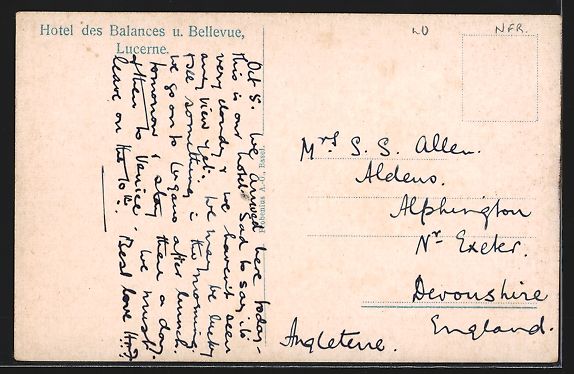 Hotel des Balances u. Bellevue,
Lucerne.
LD
NFR.
Oct 8. We arrived here today -
this is our hotel. Sad to say it is
very cloudy & we haven't seen
any view yet. We may be lucky
& see something in the morning.
We go on to Lugano after lunch
tomorrow & stay there a day.
& then to Venice. We must
leave on the 10th. Best love
Frobenius A.-G., Basel.
Mrs S. S. Allen.
Aldens.
Alphington
Nr Exeter.
Devonshire
England.
Angleterre.